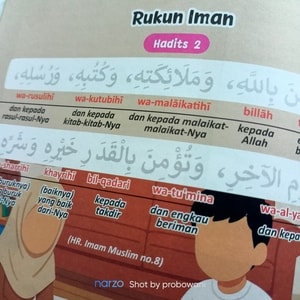 Rukun Iman
Hadits 2
بِاللّٰهِ، وَمَلَائِكَتِهِ، وَكُتُبِهِ، وَرُسُلِهِ،
wa-rusulihī wa-kutubihī wa-malāikatihī billāh
dan kepada rasul-rasul-Nya dan kepada kitab-kitab-Nya dan kepada malaikat-malaikat-Nya kepada Allah
الْآخِرِ، وَتُؤْمِنَ بِالْقَدَرِ خَيْرِهِ وَشَرِّهِ
khayrihī bil-qadari wa-tu'mina
(baiknya) yang baik dari-Nya kepada takdir dan engkau beriman dan kepada
(HR. Imam Muslim no.8)
narzo Shot by probowani